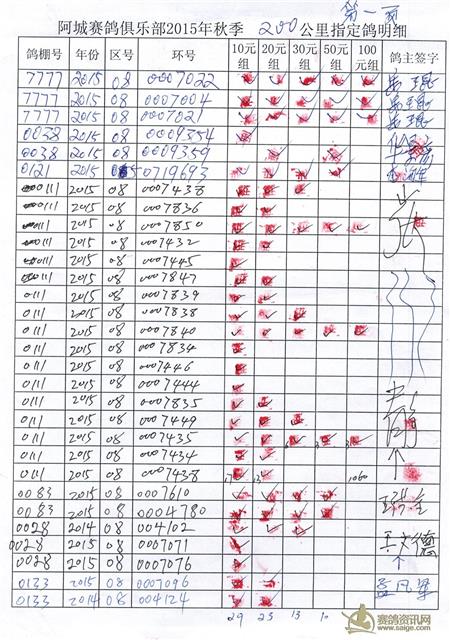 第一页
阿城赛鸽俱乐部2015年秋季 200 公里指定鸽明细
鸽棚号 年份 区号 环号 10元组 20元组 30元组 50元组 100元组 鸽主签字
7777 2015 08 0007022
7777 2015 08 0007004
7777 2015 08 0007021
0038 2015 08 0009354
0038 2015 08 0009359
0121 2015 0719693
0111 2015 08 0007438
0111 2015 08 0007836
0111 2015 08 0007850
0111 2015 08 0007432
0111 2015 08 0007445
0111 2015 08 0007847
0111 2015 08 0007839
0111 2015 08 0007838
0111 2015 08 0007840
0111 2015 08 0007834
0111 2015 08 0007446
0111 2015 08 0007444
0111 2015 08 0007835
0111 2015 08 0007449
0111 2015 08 0007435
0111 2015 08 0007434
0111 2015 08 0007438 1060
0083 2015 08 0007610
0083 2015 08 0004780
0028 2014 08 004102
0028 2015 08 0007071 王文德
0028 2015 08 0007076
0133 2015 08 0007096
0133 2014 08 004124
29 23 13 10
赛鸽资讯网
www.saige.com